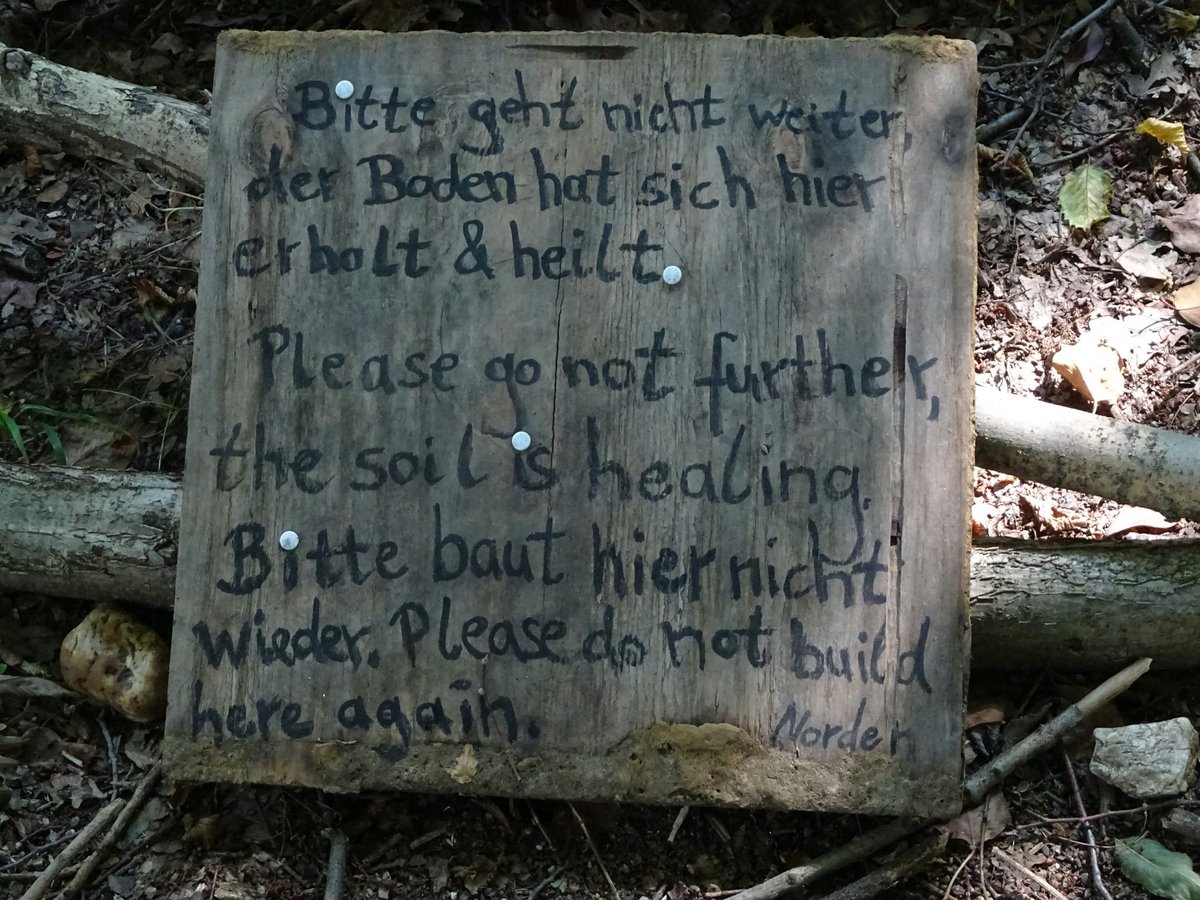 Bitte geht nicht weiter,
der Boden hat sich hier
erholt & heilt.
Please go not further,
the soil is healing.
Bitte baut hier nicht
wieder. Please do not build
here again.
Norden